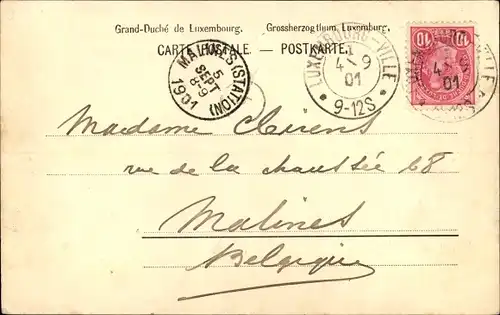 Grand-Duché de Luxembourg. Grossherzogthum Luxemburg.
CARTE POSTALE. — POSTKARTE.
MALINES (STATION)
5
SEPT
8-9
1901
LUXEMBOURG-VILLE
4-9
01
9-12S
10 10
4
01
Madame
rue de la chaussée 68
Malines
Belgique